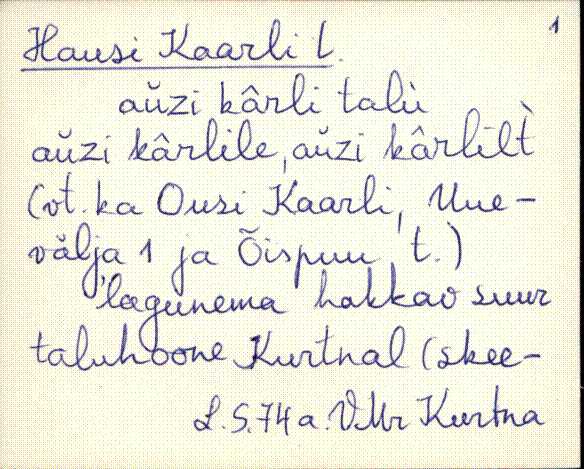 1
Hausi Kaarli t.
aŭzi kârli talù
aŭzi kârlile, aŭzi kârlilt̀
(vt. ka Ousi Kaarli, Uue-
välja 1 ja Õispuu t.)
'lagunema hakkav suur
taluhoone Kurtnal (skee-
L.S. 74 a. V.Mr Kurtna